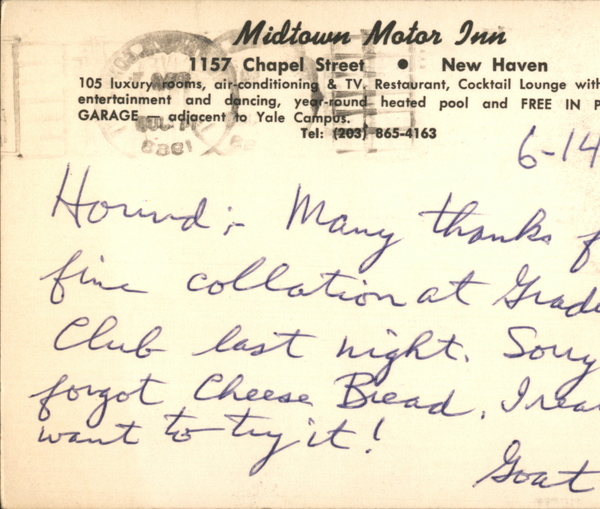 Midtown Motor Inn
1157 Chapel Street • New Haven
105 luxury rooms, air-conditioning & TV. Restaurant, Cocktail Lounge with
entertainment and dancing, year-round heated pool and FREE IN P
GARAGE — adjacent to Yale Campus.
Tel: (203) 865-4163
6-14
Hound;- Many thanks f
fine collation at Grad
Club last night. Sorry
forgot Cheese Bread. I rea
want to try it!
Goat